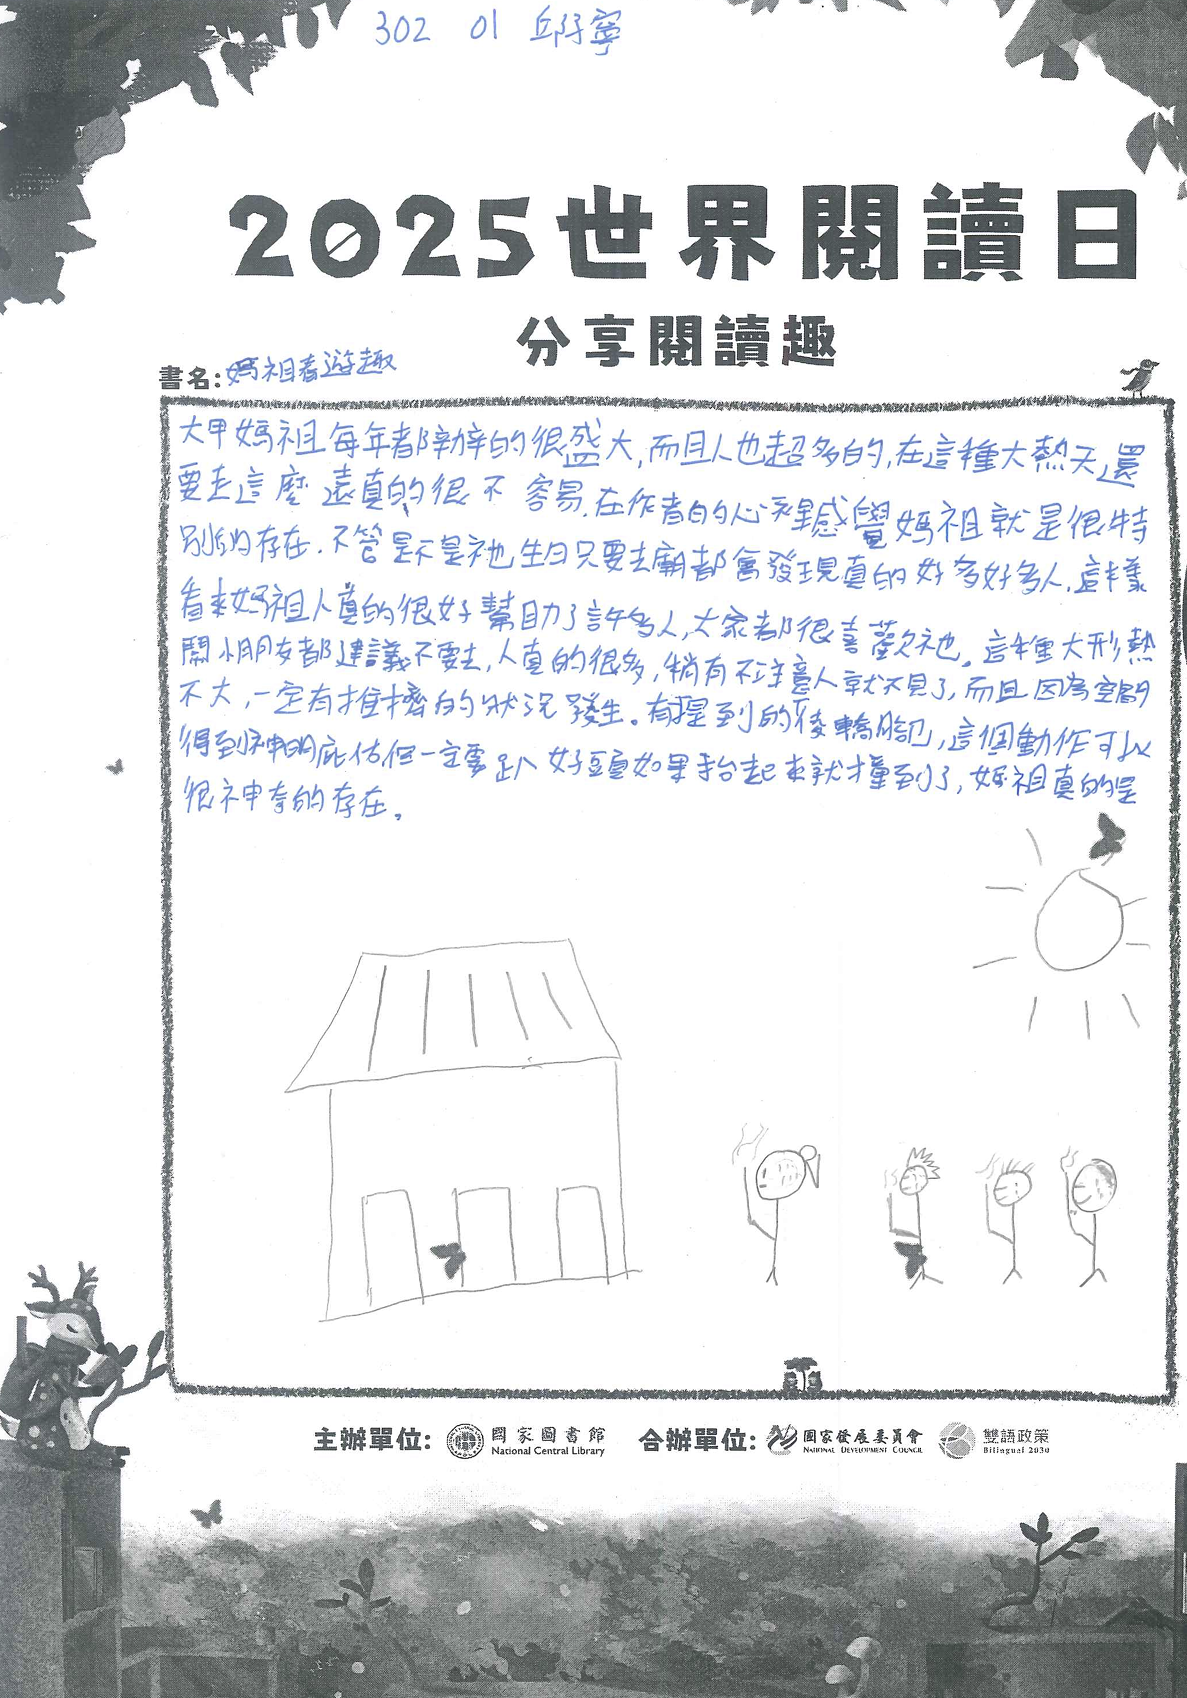 302 01 邱仔寧
2025世界閱讀日
分享閱讀趣
書名:媽祖春遊趣
大甲媽祖每年都辦的很盛大,而且人也超多的,在這種大熱天還
要走這麼遠真的很不容易.在作者的心裡感覺媽祖就是很特
別的存在.不管是不是祂生日只要去廟都會發現真的好多好多人.這樣
看來媽祖人真的很好幫助了許多人,大家都很喜歡祂。這種大形熱
鬧小朋友都建議不要去,人真的很多,稍有不注意人就不見了,而且因為空間
不大,一定有推擠的狀況發生。有提到的稜轎腳,這個動作可以
得到神明庇佑但一定要趴好頭如果抬起來就撞到了,媽祖真的是
很神奇的存在。
主辦單位: 國家圖書館 National Central Library 合辦單位: 國家發展委員會 NATIONAL DEVELOPMENT COUNCIL 雙語政策 Bilingual 2030